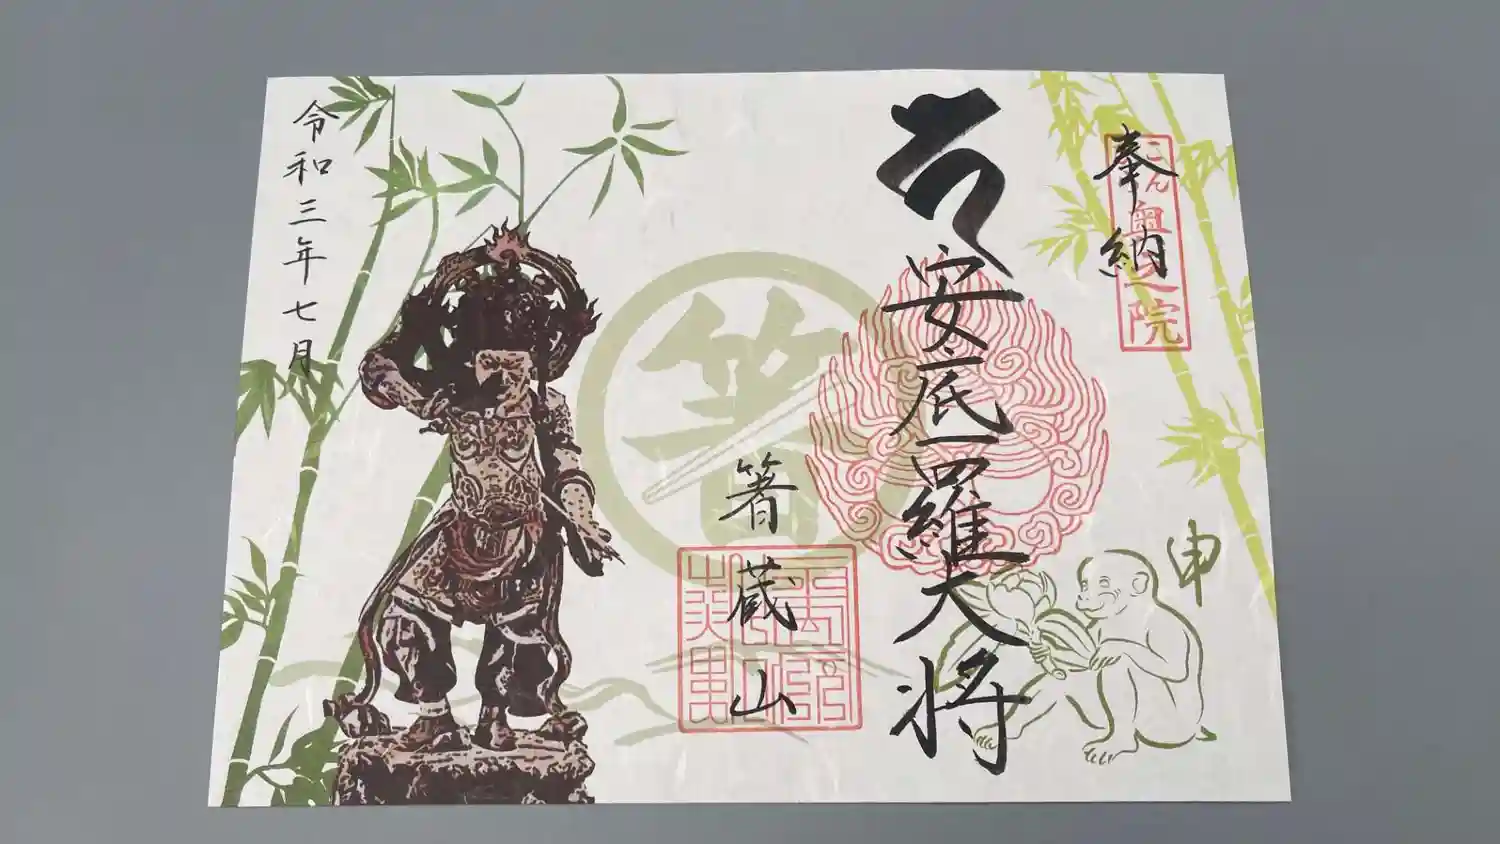 奉納
こん
奥之院
安底羅大将
申
箸
箸蔵山
令和三年七月